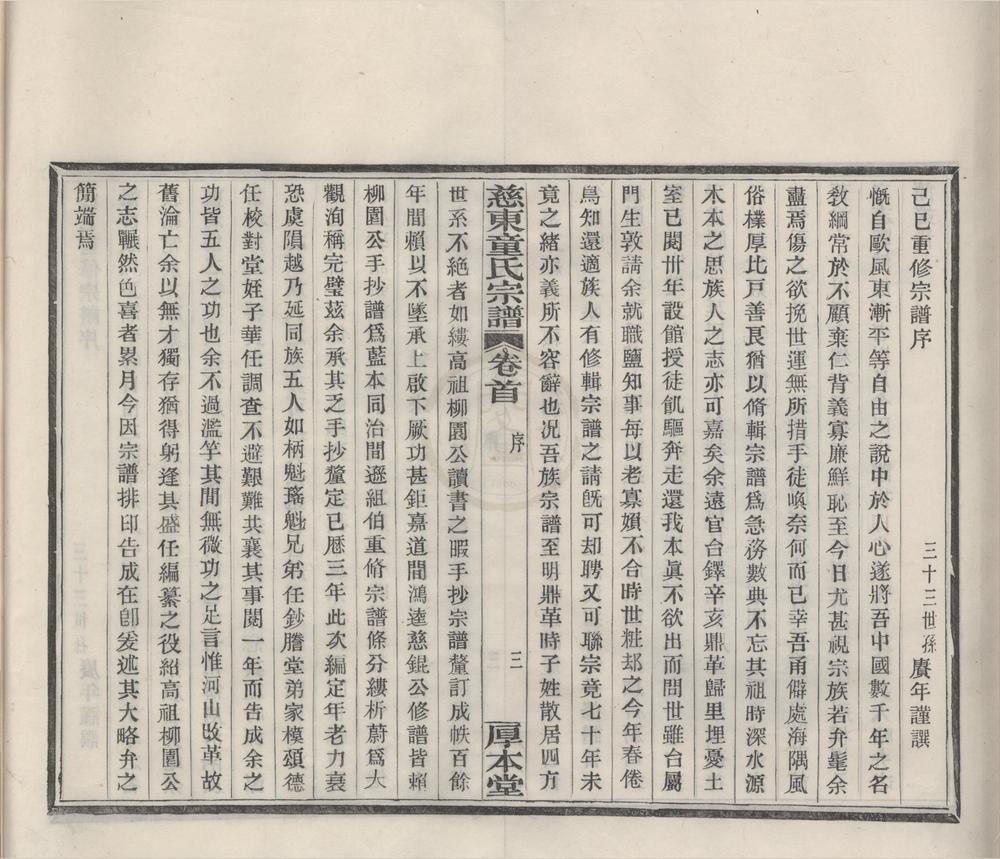 己巳重修宗譜序
三十三世孫 賡年謹譔
慨自歐風東漸平等自由之說中於人心遂將吾中國數千年之名
敎綱常於不顧棄仁背義寡廉鮮恥至今日尤甚視宗族若弁髦余
盡焉傷之欲挽世運無所措手徒喚奈何而已幸吾甬僻處海隅風
俗樸厚比戶善良猶以脩輯宗譜爲急務數典不忘其祖時深水源
木本之思族人之志亦可嘉矣余遠官台鐸辛亥鼎革歸里埋憂土
室已閱卅年設館授徒飢驅奔走還我本眞不欲出而問世雖台屬
門生敦請余就職鹽知事每以老寡媍不合時世粧却之今年春倦
鳥知還適族人有修輯宗譜之請旣可却聘又可聯宗竟七十年未
竟之緒亦義所不容辭也况吾族宗譜至明鼎革時子姓散居四方
慈東童氏宗譜 卷首 序 三 厚本堂
世系不絶者如縷高祖柳園公讀書之暇手抄宗譜釐訂成帙百餘
年間賴以不墜承上啟下厥功甚鉅嘉道間鴻逵慈錕公修譜皆賴
柳園公手抄譜爲藍本同治間遜組伯重脩宗譜條分縷析蔚爲大
觀洵稱完璧茲余承其乏手抄釐定已厯三年此次編定年老力衰
恐虞隕越乃延同族五人如柄魁瑤魁兄弟任鈔謄堂弟家模頌德
任校對堂姪子華任調查不避艱難共襄其事閱一年而告成余之
功皆五人之功也余不過濫竽其間無微功之足言惟河山改革故
舊淪亡余以無才獨存猶得躬逢其盛任編纂之役紹高祖柳園公
之志囅然色喜者累月今因宗譜排印告成在卽爰述其大略弁之
簡端焉